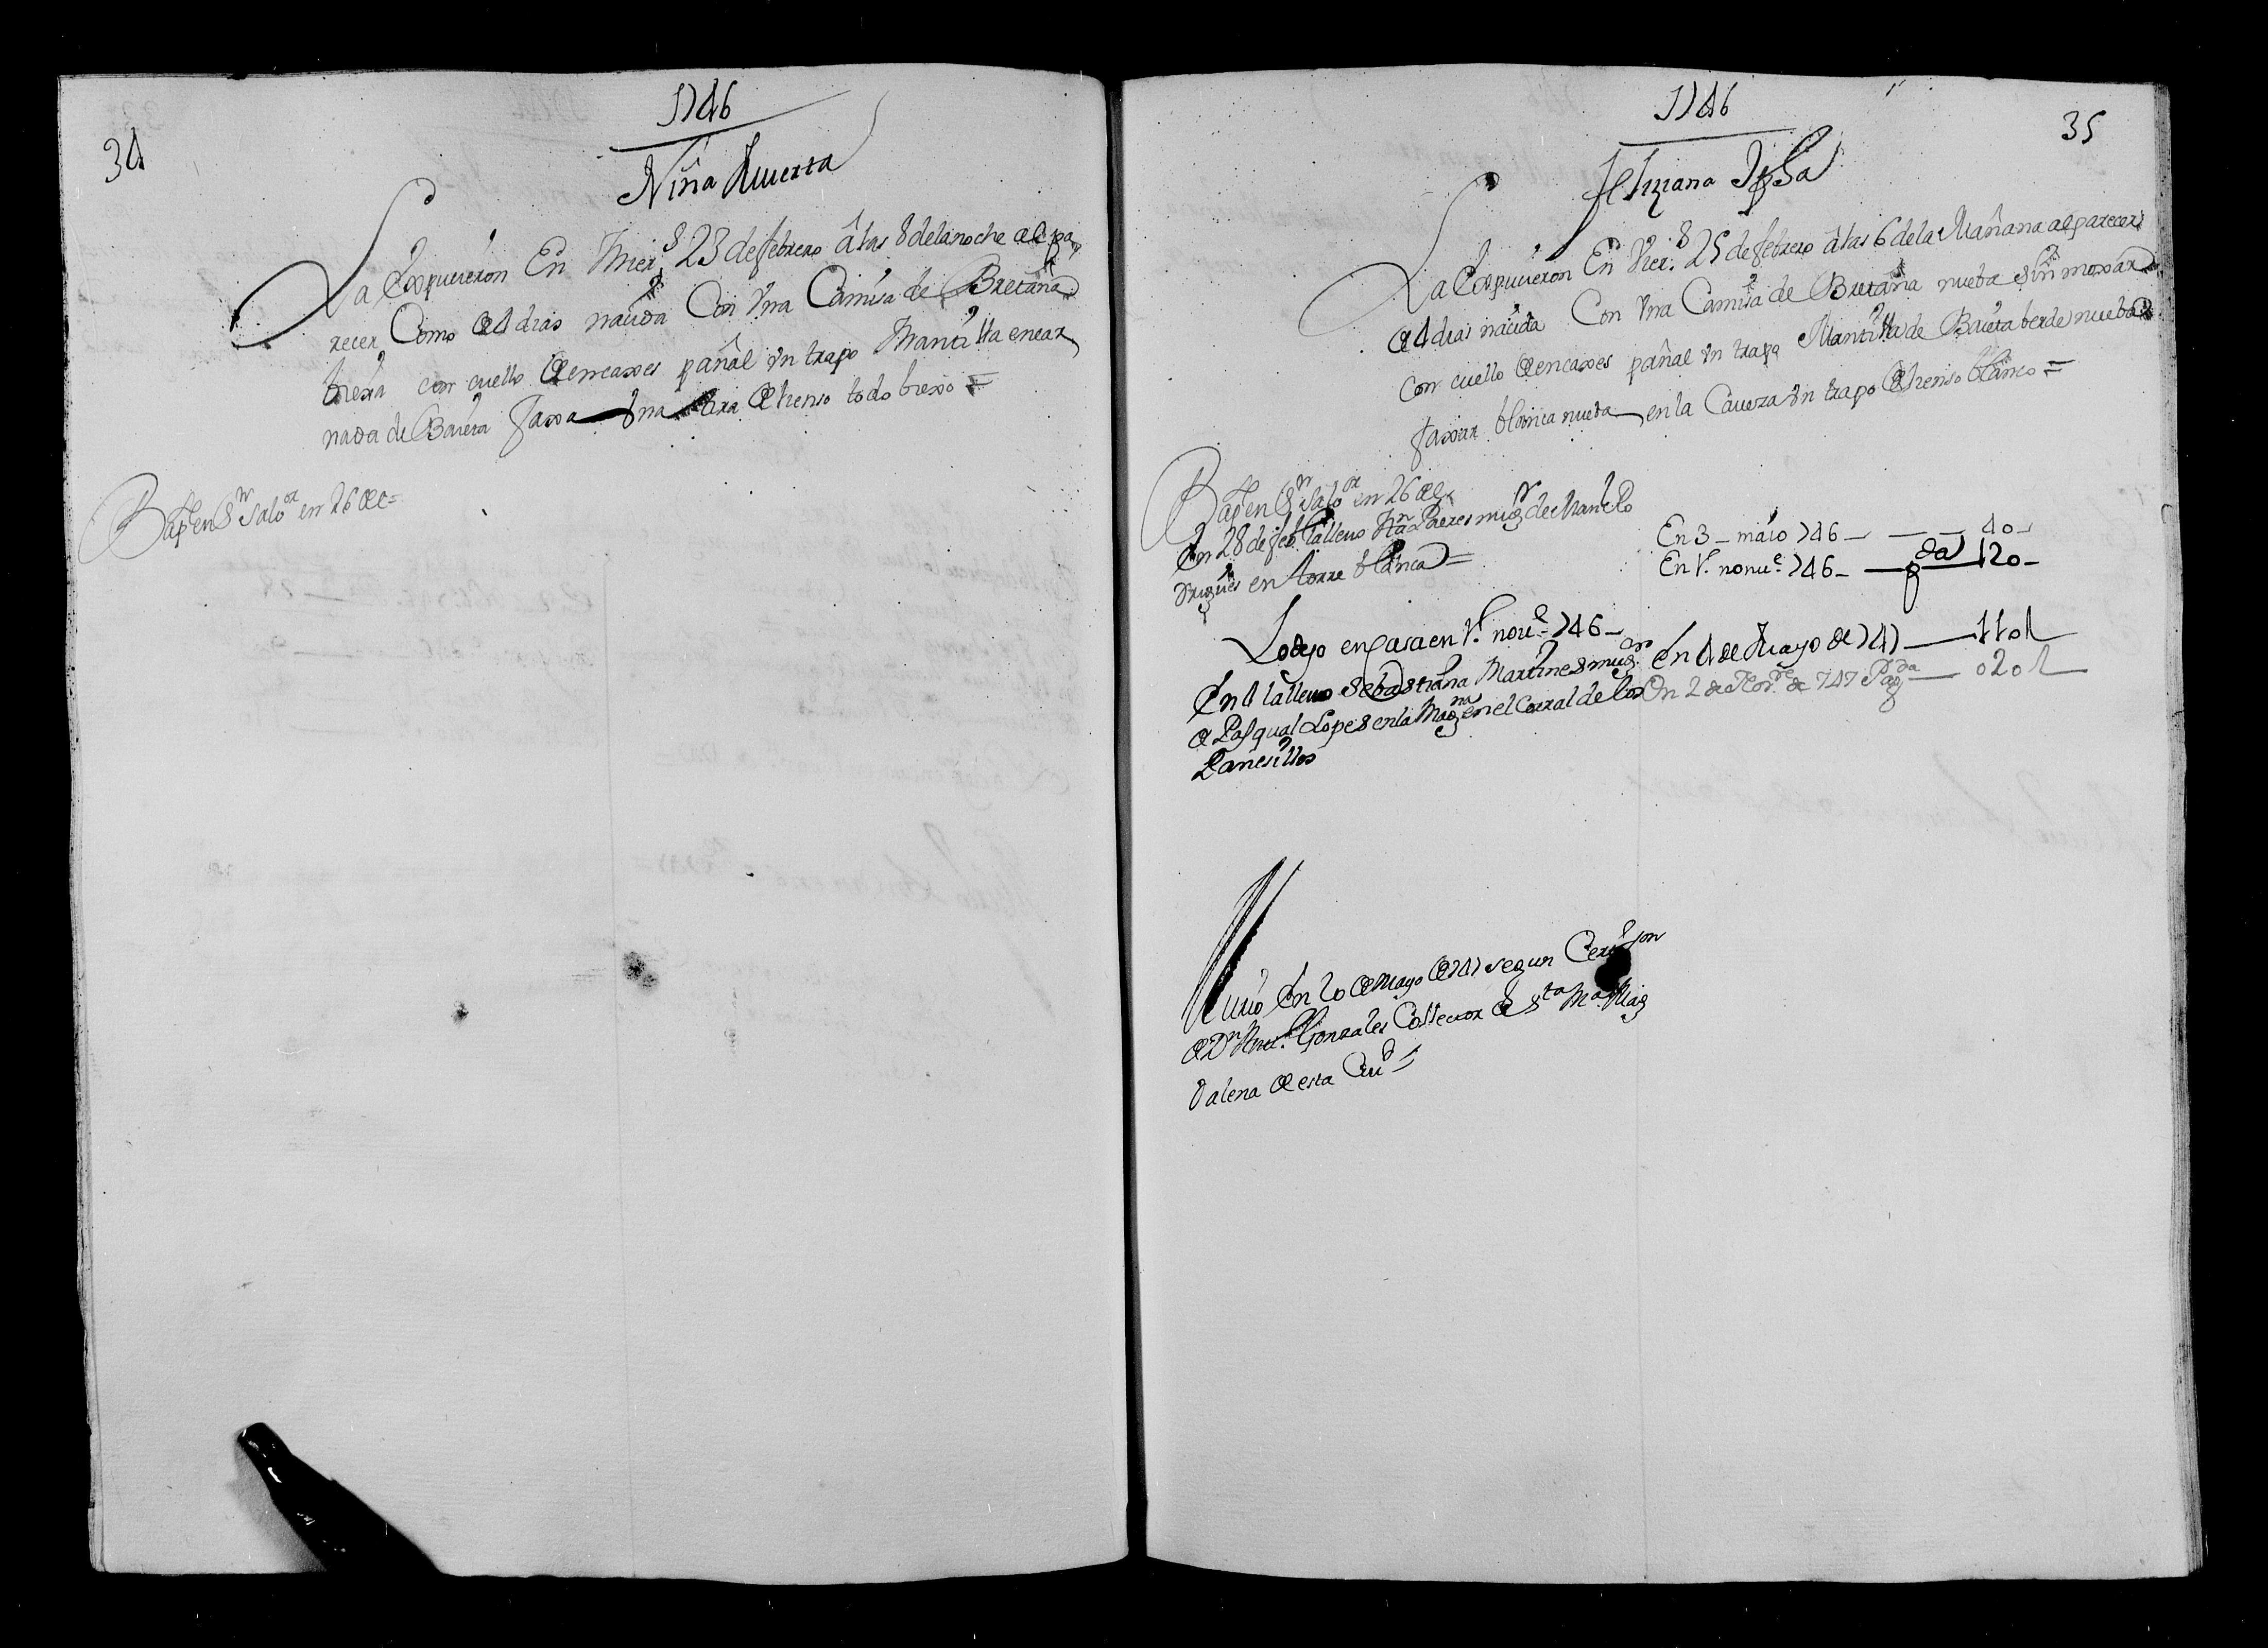 34
1746
Niña Muerta
La Expusieron En Mier.s 23 de febrero â las 8 de la noche al pa
recer Como de 4 dias nacida Con Vna Camisa de Bretaña
biexa con cuello de encaxes pañal Vn trapo Mantilla encar
nada de Baieta faxa Vna tira de lienso todo biexo =
Bap en S.r Salo.or en 26 de =
1746
35
Feliziana Jpha
La Expusieron En Vier.s 25 de febrero â las 6 de la Mañana al parecer
de 4 dias nacida Con Vna Camisa de Bretaña nueba sin moxar
con cuello de encaxes pañal Vn trapo Mantilla de Baieta berde nueba
faxar blanca nueba en la Caveza Vn trapo de lienso blanco =
Bap en S.r Salo.or en 26 de
En 28 de feb. la lleuo Jna Peres mug.r de Manl Ro
drigues en torre blanca =
En 3 _ maio 746 _ 40 _
En 1.º nonu.e 746 _ 120 _
Lo dejo en Casa en 1.º nou.e 746 _
En 4 la lleuo Sebastiana Martines mug.
de Pasqual Lopes en la Mag.na en el Corral de los
Panesillos
En 4 de Mayo de 747 110
En 2 de Nov.re de 747 Pag.da 020
Murió En 20 de Mayo de 747 segun Certf.on
de D.n Gonzales Collector de S.ta M.a Mag
dalena de esta Ciu.d =